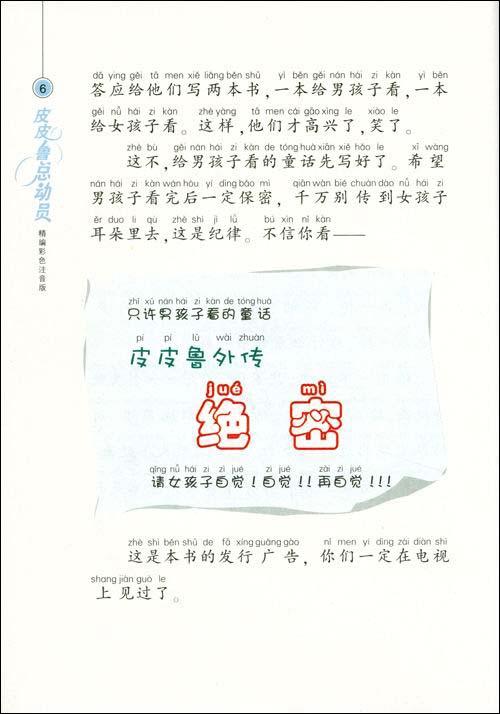 6
皮皮鲁总动员
精编彩色注音版
dā ying gěi tā men xiě liǎng běn shū yì běn gěi nán hái zi kàn yì běn
答应给他们写两本书,一本给男孩子看,一本
gěi nǚ hái zi kàn zhè yàng tā men cái gāo xìng le xiào le
给女孩子看。这样,他们才高兴了,笑了。
zhè bù gěi nán hái zi kàn de tóng huà xiān xiě hǎo le xī wàng
这不,给男孩子看的童话先写好了。希望
nán hái zi kàn wán hòu yí dìng bǎo mì qiān wàn bié chuán dào nǚ hái zi
男孩子看完后一定保密,千万别传到女孩子
ěr duo li qù zhè shì jì lǜ bú xìn nǐ kàn
耳朵里去,这是纪律。不信你看——
zhǐ xǔ nán hái zi kàn de tóng huà
只许男孩子看的童话
pí pí lǔ wài zhuàn
皮皮鲁外传
jué mì
绝密
qǐng nǚ hái zi zì jué zì jué zài zì jué
请女孩子自觉!自觉!!再自觉!!!
zhè shì běn shū de fā xíng guǎng gào nǐ men yí dìng zài diàn shì
这是本书的发行广告,你们一定在电视
shang jiàn guò le
上见过了。